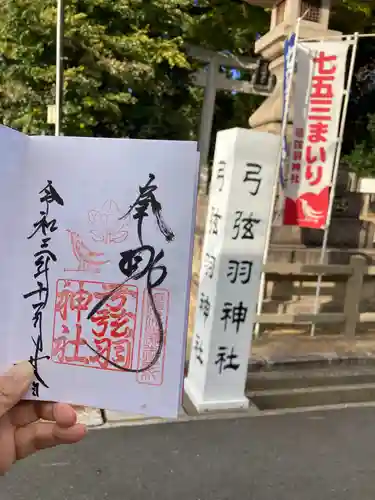 令和三年十一月
弓弦羽
神社
弓弦羽神社
弓弦羽神社
七五三まいり
弓弦羽神社